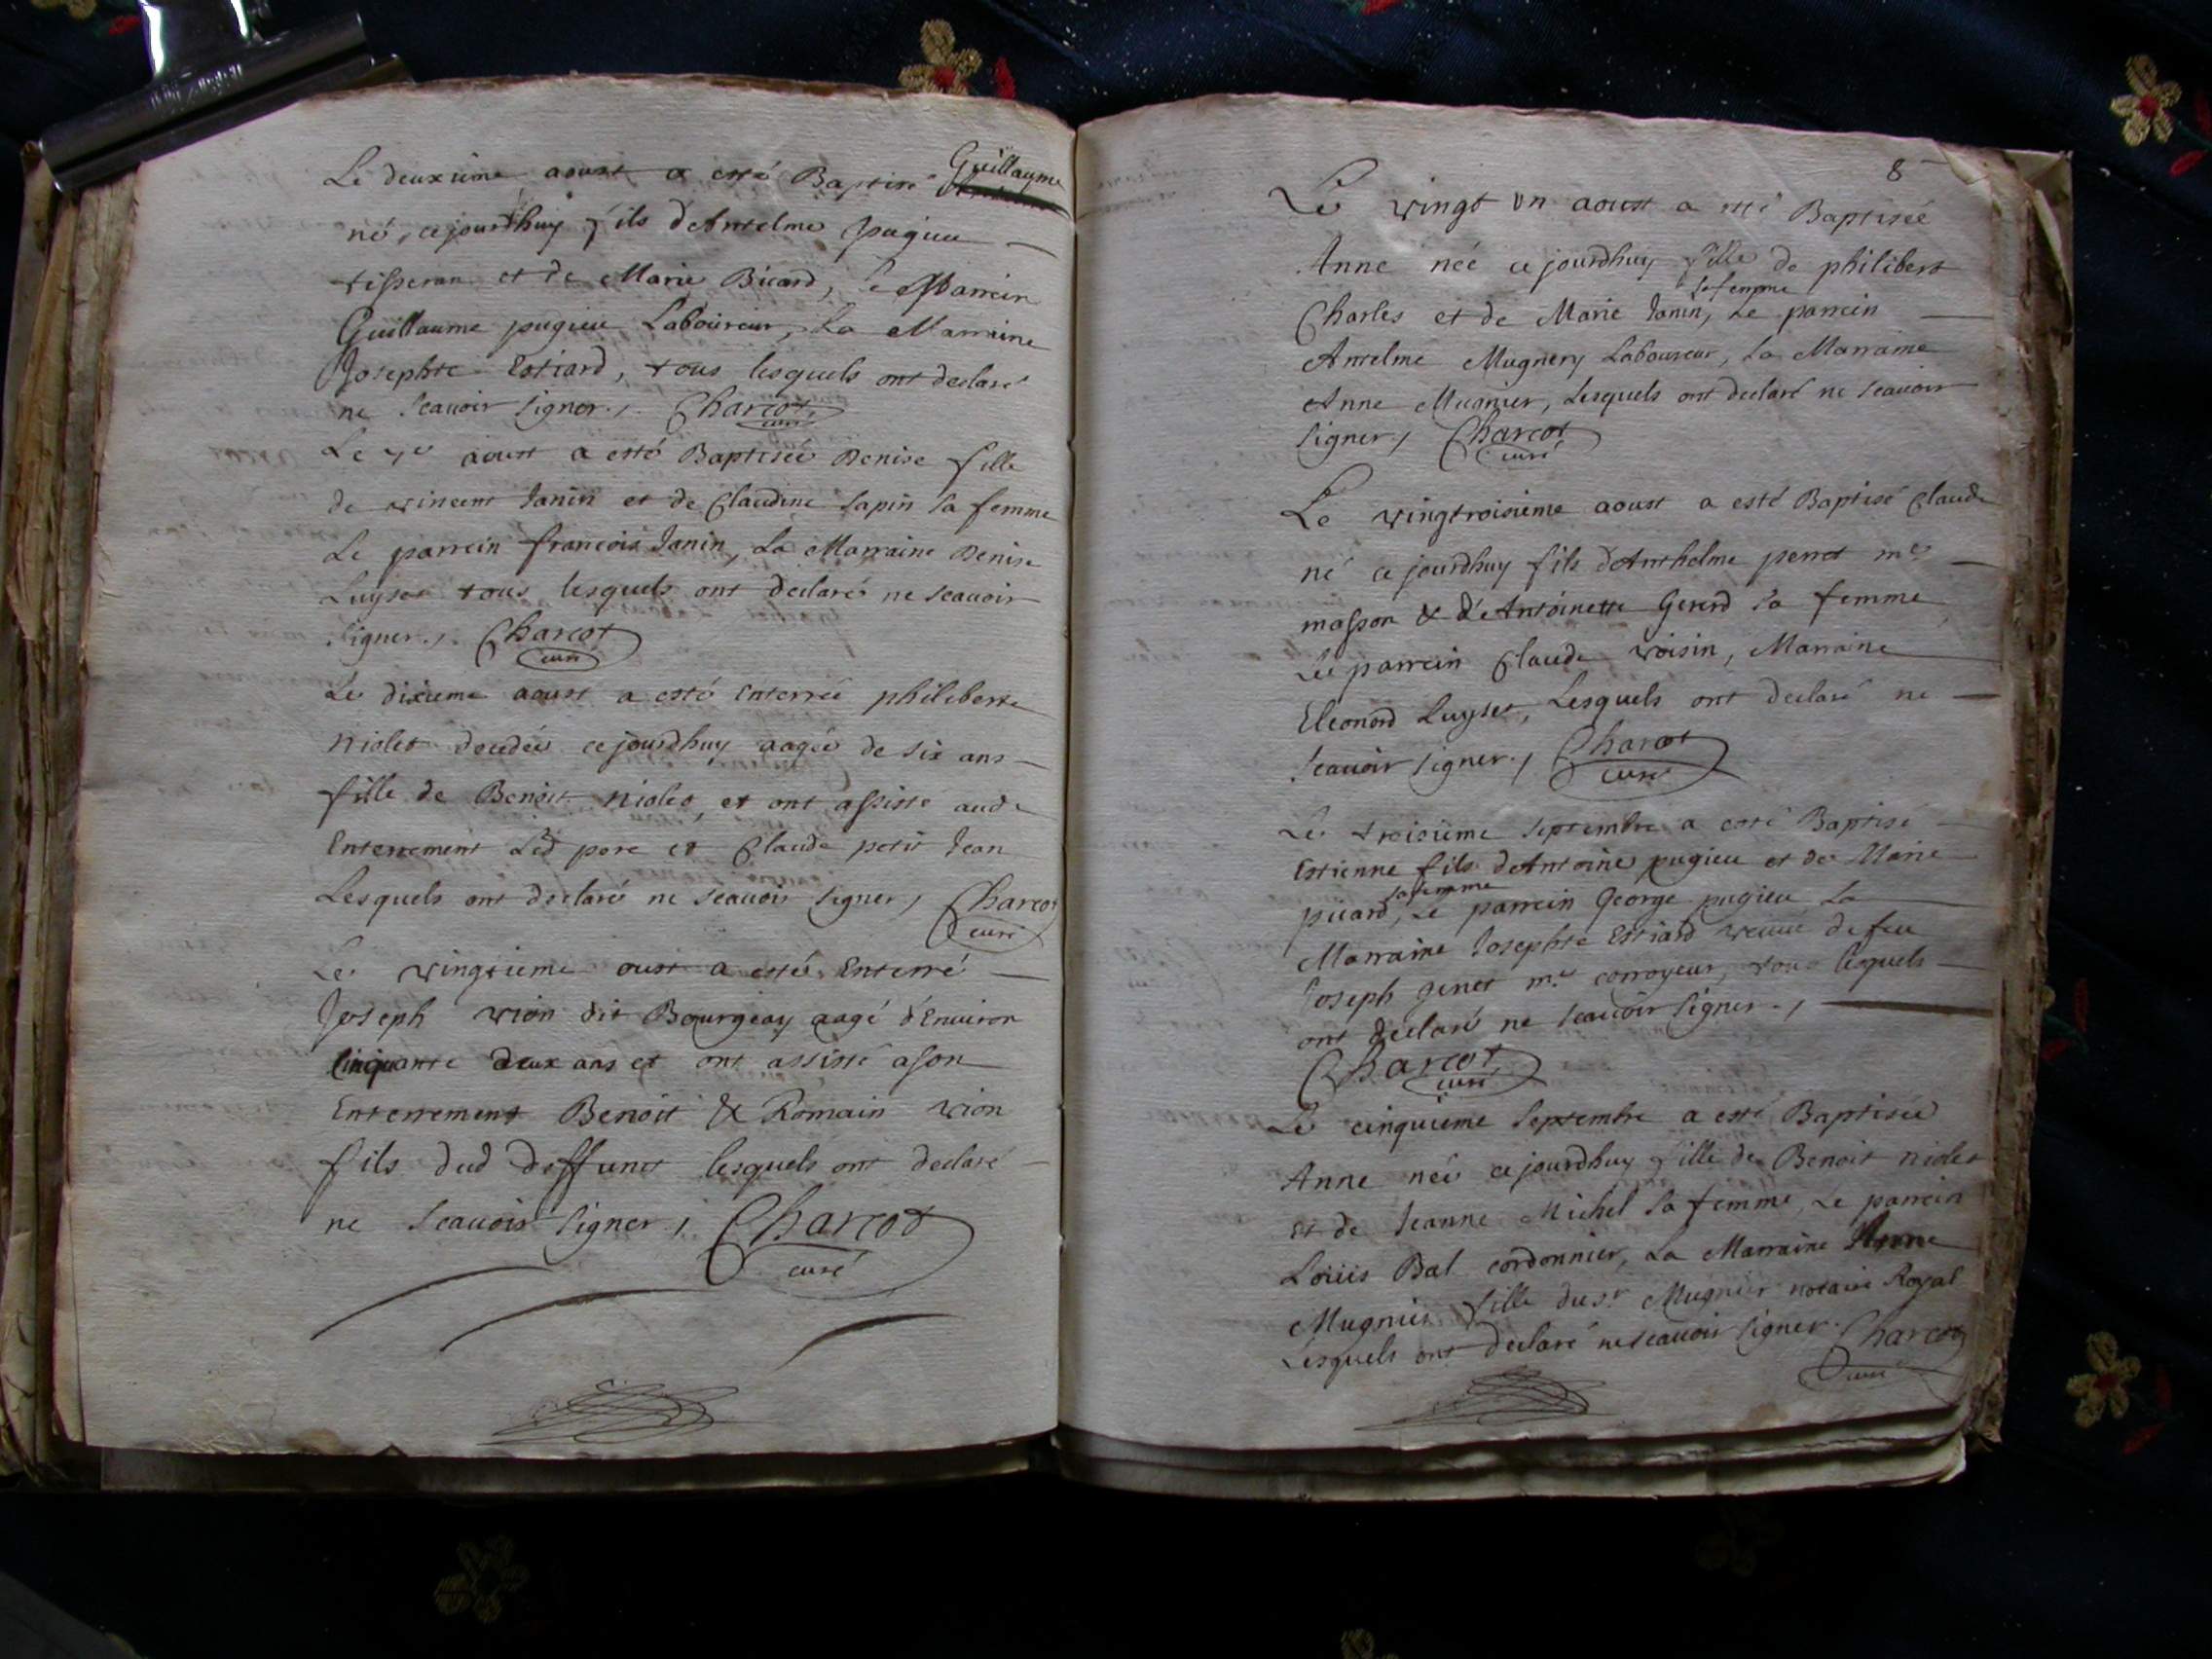 Le deuxieme aoust a esté Baptisé Guillaume
né, cejourdhuy fils d'Antelme pugieu
tisseran et de Marie Bicard, le Parrein
Guillaume pugieu Laboureur, La Marraine
Josephte Estiard, tous lesquels ont declaré
ne scauoir signer. Charcot
curé
Le 7e aoust a esté Baptiseé Denise fille
de vincent Janin et de Claudine Sapin sa femme
Le parrein francois Janin, La Marraine Denise
Luyset tous lesquels ont declaré ne scauoir
signer. Charcot
curé
Le dixieme aoust a esté enterreé philiberte
niolet decedeé cejourdhuy aageé de six ans
fille de Benoit niolet, et ont assisté aud
Enterrement Led pere et Claude petit Jean
Lesquels ont declaré ne scauoir signer, Charcot
curé
Le vingtieme oust a esté Enterré
Joseph vion dit Bourgeay aagé d'Enuiron
Cinquante deux ans et ont assisté a son
Enterrement Benoit & Romain vion
fils dud deffunct lesquels ont declaré
ne scauoir signer, Charcot
curé
8
Le vingt un aoust a esté Baptiseé
Anne neé cejourdhuy fille de philibert
sa femme
Charles et de Marie Janin, Le parrein
Antelme Mugnery Laboureur, La Marraine
Anne Mugnier, Lesquels ont declaré ne scauoir
signer, Charcot
curé
Le vingtroisieme aoust a esté Baptisé Claude
né cejourdhuy fils d'Anthelme perret me
masson & d'Antoinette Gererd sa femme
Le parrein Claude voisin, Marraine
Eleonord Luyset, Lesquels ont declaré ne
scauoir signer, Charcot
curé
Le troisieme septembre a esté Baptisé
Estienne fils d'Antoine pugieu et de Marie
sa femme
picard, Le parrein George pugieu La
Marraine Josephte Estiard veuue de feu
Joseph genet me corroyeur, tous lesquels
ont declaré ne scauoir signer.,
Charcot
curé
Le cinquieme Septembre a esté Baptiseé
Anne neé cejourdhuy fille de Benoit niolet
et de Jeanne Michel sa femme, Le parrein
Loüis Bal cordonnier, La Marraine Anne
Mugnier fille du sr Mugnier notaire Royal
Lesquels ont declaré ne scauoir signer. Charcot
curé